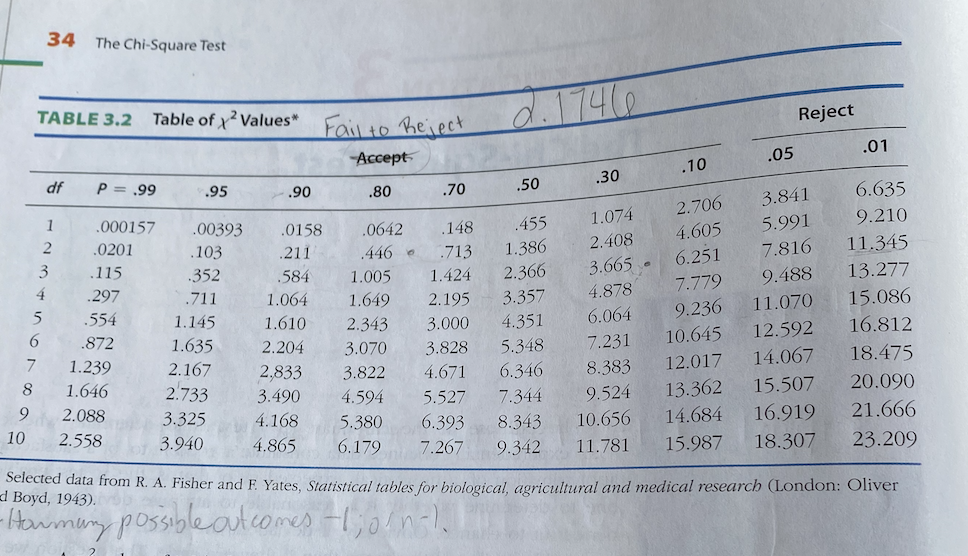 34 The Chi-Square Test
TABLE 3.2 Table of χ² Values* Fail to Reject 2.1746 Reject
Accept
df P = .99 .95 .90 .80 .70 .50 .30 .10 .05 .01
1 .000157 .00393 .0158 .0642 .148 .455 1.074 2.706 3.841 6.635
2 .0201 .103 .211 .446 .713 1.386 2.408 4.605 5.991 9.210
3 .115 .352 .584 1.005 1.424 2.366 3.665 6.251 7.816 11.345
4 .297 .711 1.064 1.649 2.195 3.357 4.878 7.779 9.488 13.277
5 .554 1.145 1.610 2.343 3.000 4.351 6.064 9.236 11.070 15.086
6 .872 1.635 2.204 3.070 3.828 5.348 7.231 10.645 12.592 16.812
7 1.239 2.167 2,833 3.822 4.671 6.346 8.383 12.017 14.067 18.475
8 1.646 2.733 3.490 4.594 5.527 7.344 9.524 13.362 15.507 20.090
9 2.088 3.325 4.168 5.380 6.393 8.343 10.656 14.684 16.919 21.666
10 2.558 3.940 4.865 6.179 7.267 9.342 11.781 15.987 18.307 23.209
Selected data from R. A. Fisher and F. Yates, Statistical tables for biological, agricultural and medical research (London: Oliver
d Boyd, 1943).
How many possible outcomes -1; or n-1.